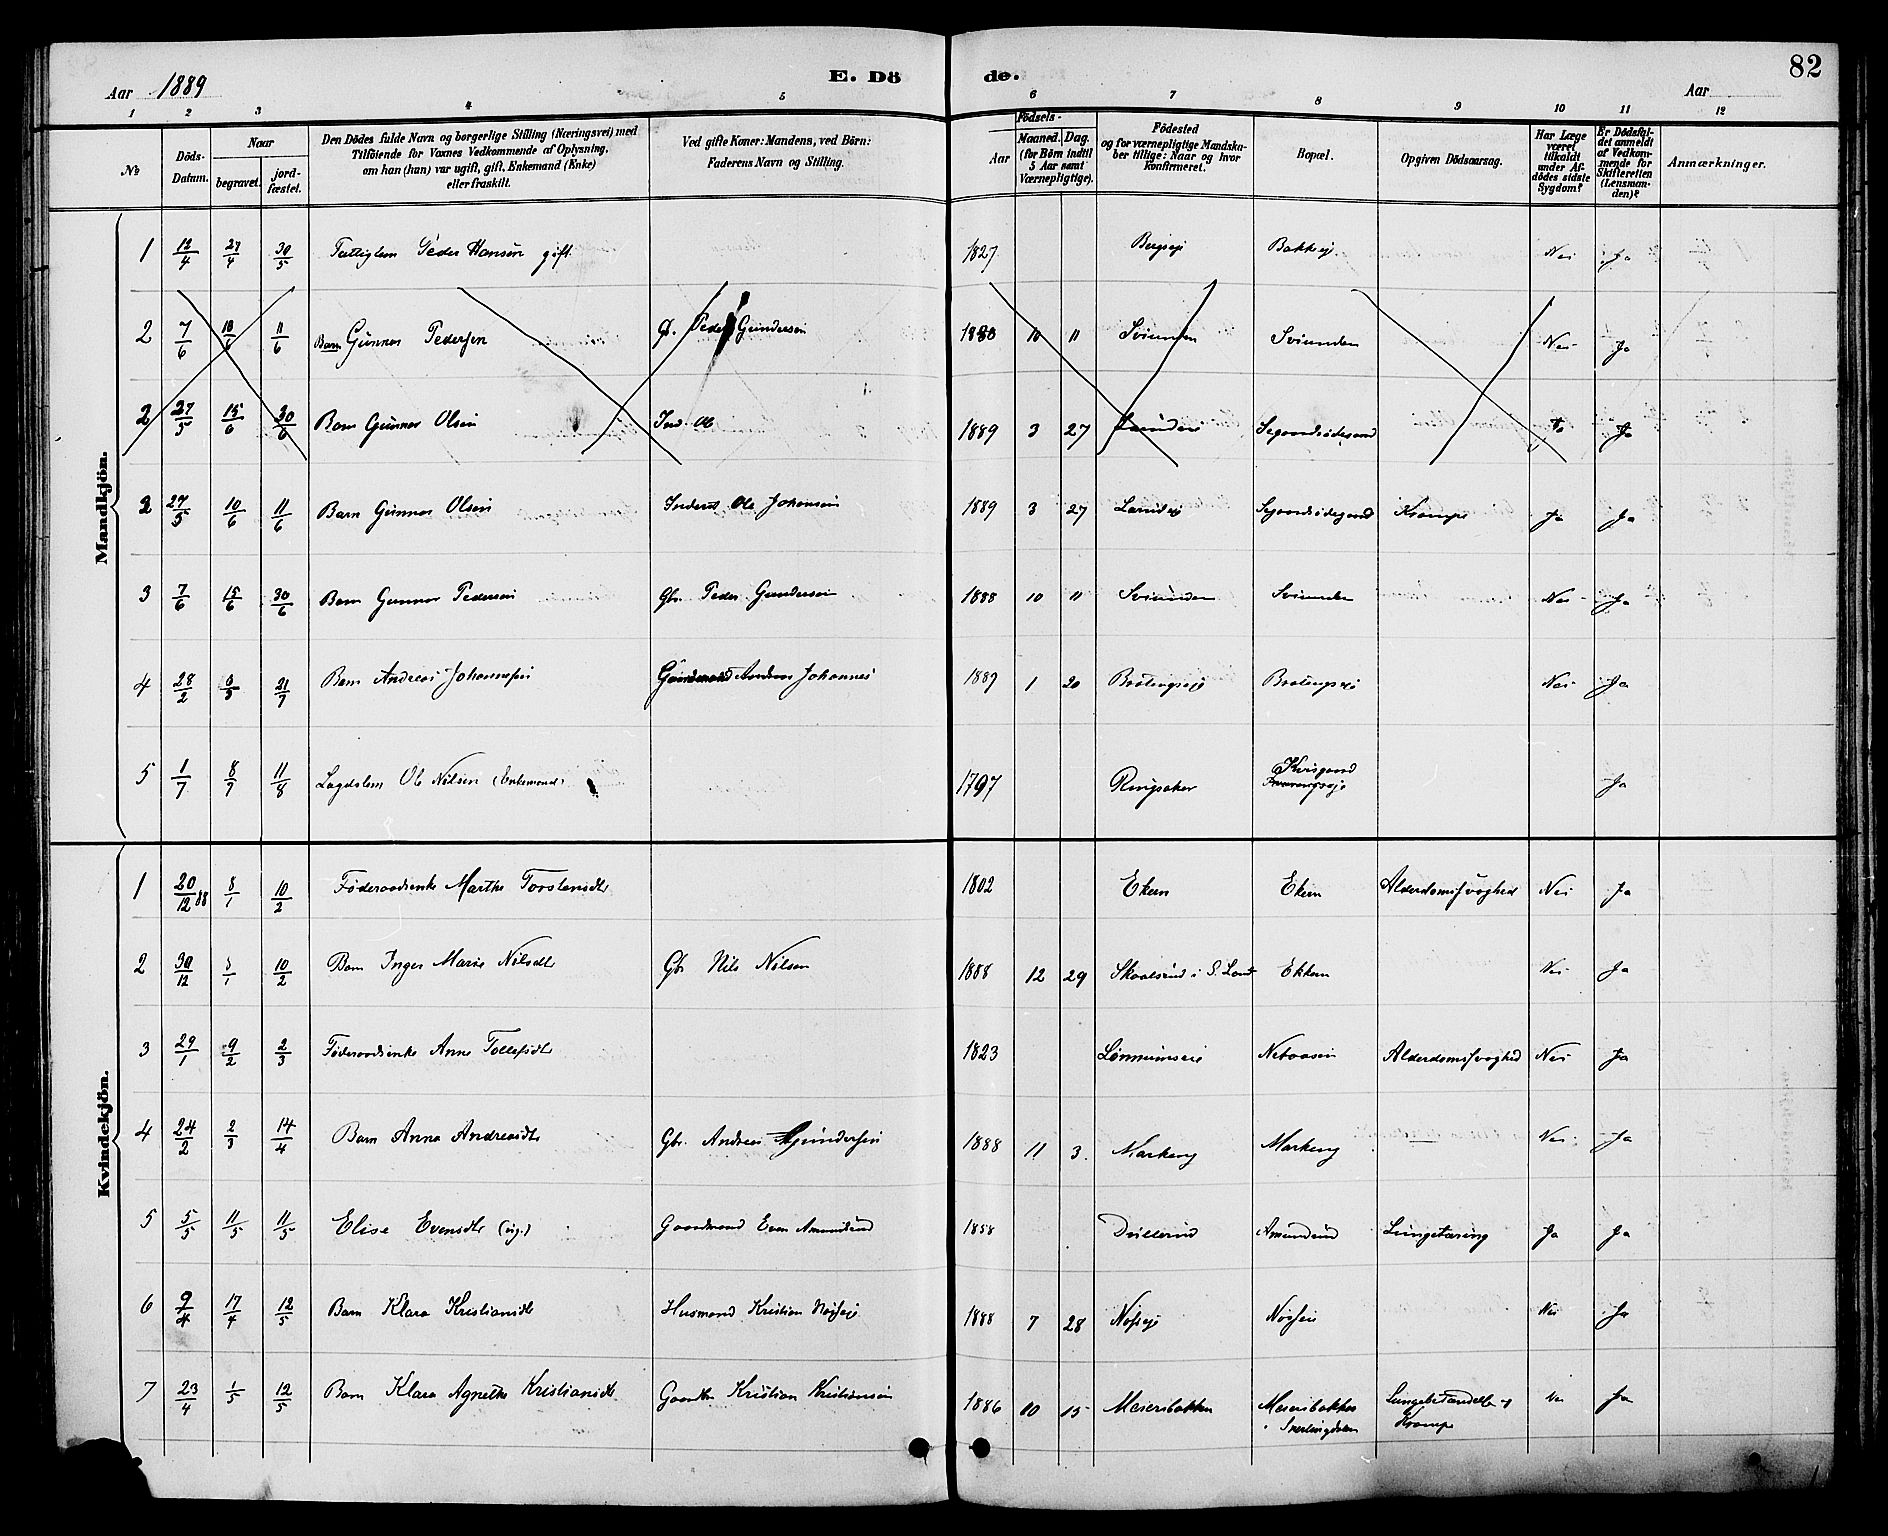 Aar 1889 E. Dö de. Aar 82
1 2 3 4 5 6 7 8 9 10 11 12
№ Döds-Datum. Naar begravet. jord-fæstet. Den Dödes fulde Navn og borgerlige Stilling (Næringsvei) med Tilföiende for Voxnes Vedkommende af Oplysning, om han (hun) var ugift, gift, Enkemand (Enke) eller fraskilt. Ved gifte Koner: Mandens, ved Börn: Faderens Navn og Stilling. Födsels- Aar Maaned. Dag. (for Börn indtil 5 Aar samt Værnepligtige). Födested og for værnepligtige Mandskaber tillige: Naar og hvor konfirmeret. Bopæl. Opgiven Dödsaarsag. Har Læge været tilkaldt under Afdödes sidste Sygdom? Er Dödsfaldet anmeldt af Vedkommende for Skifteretten (Lensmanden)? Anmærkninger.
Mandkjön.
1 12/4 27/4 30/5 Peder Hansen gift 1827 Nei Ja
2 7/6 10/6 11/6 Barn Gunnar Pedersen Peder Gundersen 10 11 Sviunden Sviunden Nei Ja
2 27/5 15/6 30/6 Barn Gunnar Olsen Ole 1889 3 27 Ja
2 27/5 10/6 11/6 Barn Gunnar Olsen Inderst Ole Johansen 1889 3 27 Krampe Ja Ja
3 7/6 15/6 30/6 Barn Gunnar Pedersen Gbr. Peder Gundersen 1888 10 11 Sviunden Sviunden Nei Ja
4 28/2 21/7 Barn Andreas Johannesen Johannes 1889 1 20 Nei Ja
5 1/7 8/7 11/8 Lægdslem Ole Nilsen (Enkemand) 1797 Ringsaker Ja
Kvindekjön.
1 20/12 88 8/1 10/2 Føderaadsenke Marthe Torstensdtr 1802 Ekern Ekern Alderdomssvaghed Nei Ja
2 30/12 10/2 Barn Inger Marie Nilsdtr Gbr Nils Nilsen 1888 12 29 i S. Land Ekkern Nei Ja
3 29/1 9/2 2/3 Føderaadsenke Anne Tollefsdtr 1823 Alderdomssvaghed Nei Ja
4 24/2 2/3 14/4 Barn Anna Andreasdtr Gbr. Andreas Gundersen 1888 11 3. Markeng Markeng Nei Ja
5 5/5 11/5 11/5 Elise Evensdtr (ug.) Gaardmand Even Amundrud 1858 Amundrud Lungetæring Ja Ja
6 9/4 17/4 12/5 Barn Klara Kristiansdtr Husmand Kristian 1888 7 28 Nei Ja
7 23/4 1/5 12/5 Barn Klara Agnethe Kristiansdtr Kristian Kristiansen 1886 10 15 Meieribakken Meieribakken Krampe Ja